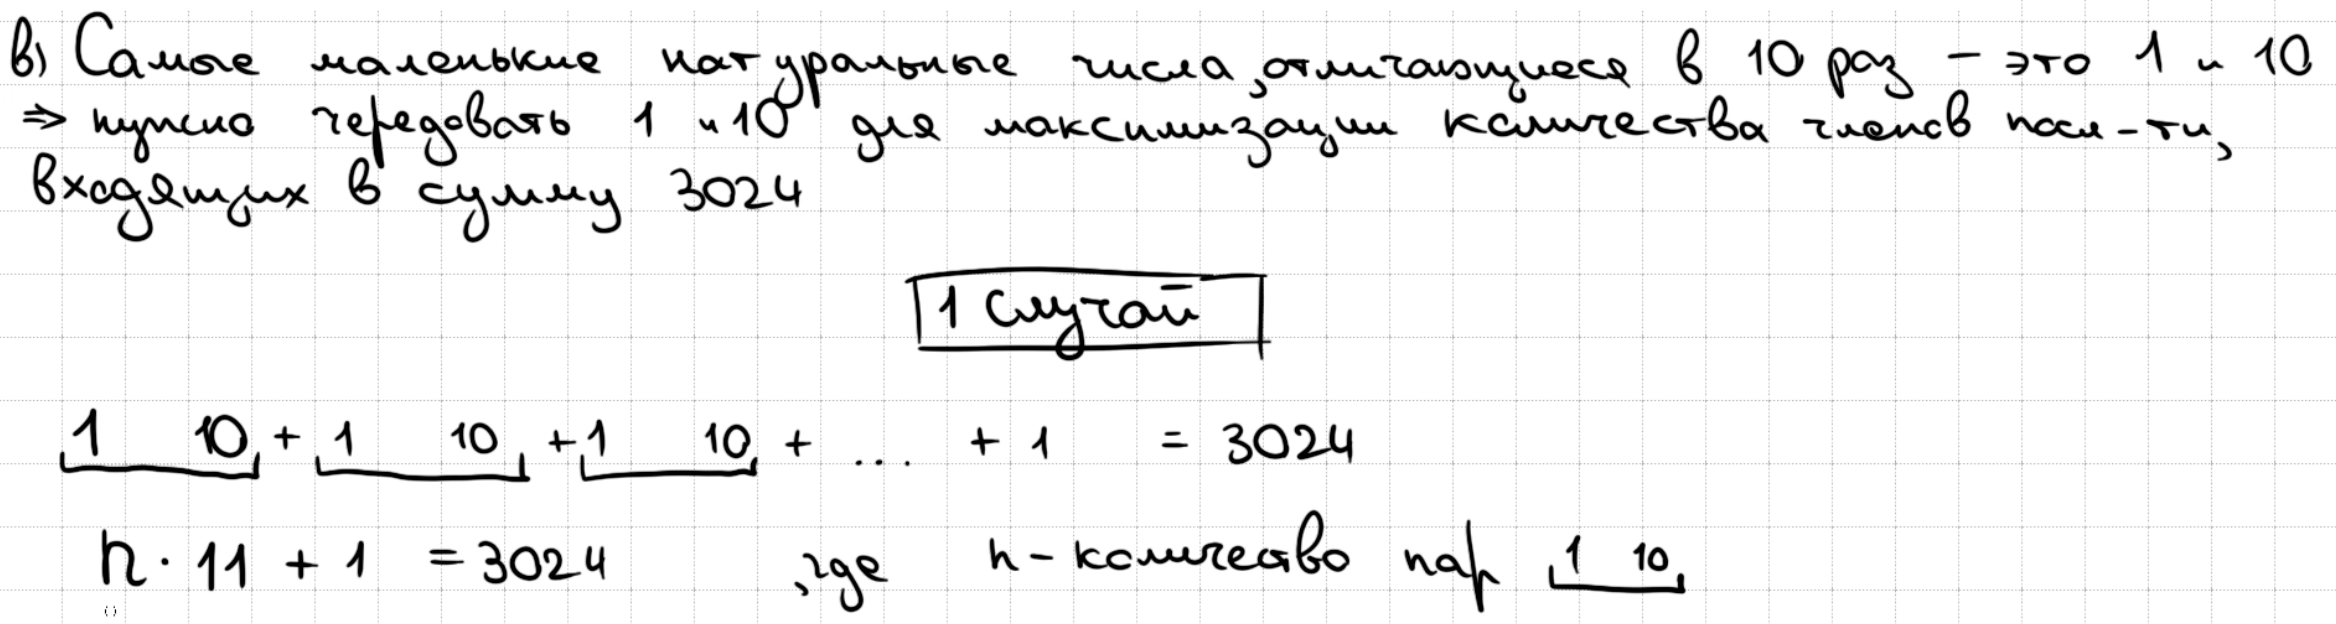 в) Самые маленькие натуральные числа, отличающиеся в 10 раз – это 1 и 10
⇒ нужно чередовать 1 и 10 для максимизации количества членов посл-ти,
входящих в сумму 3024
1 случай
1 10 + 1 10 + 1 10 + ... + 1 = 3024
n · 11 + 1 = 3024 , где n - количество пар 1 10